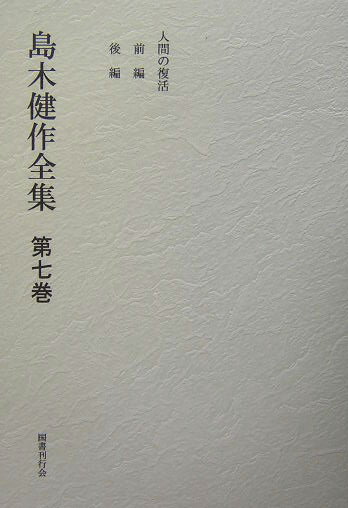 人間の復活
前編
後編
島木健作全集 第七巻
国書刊行会